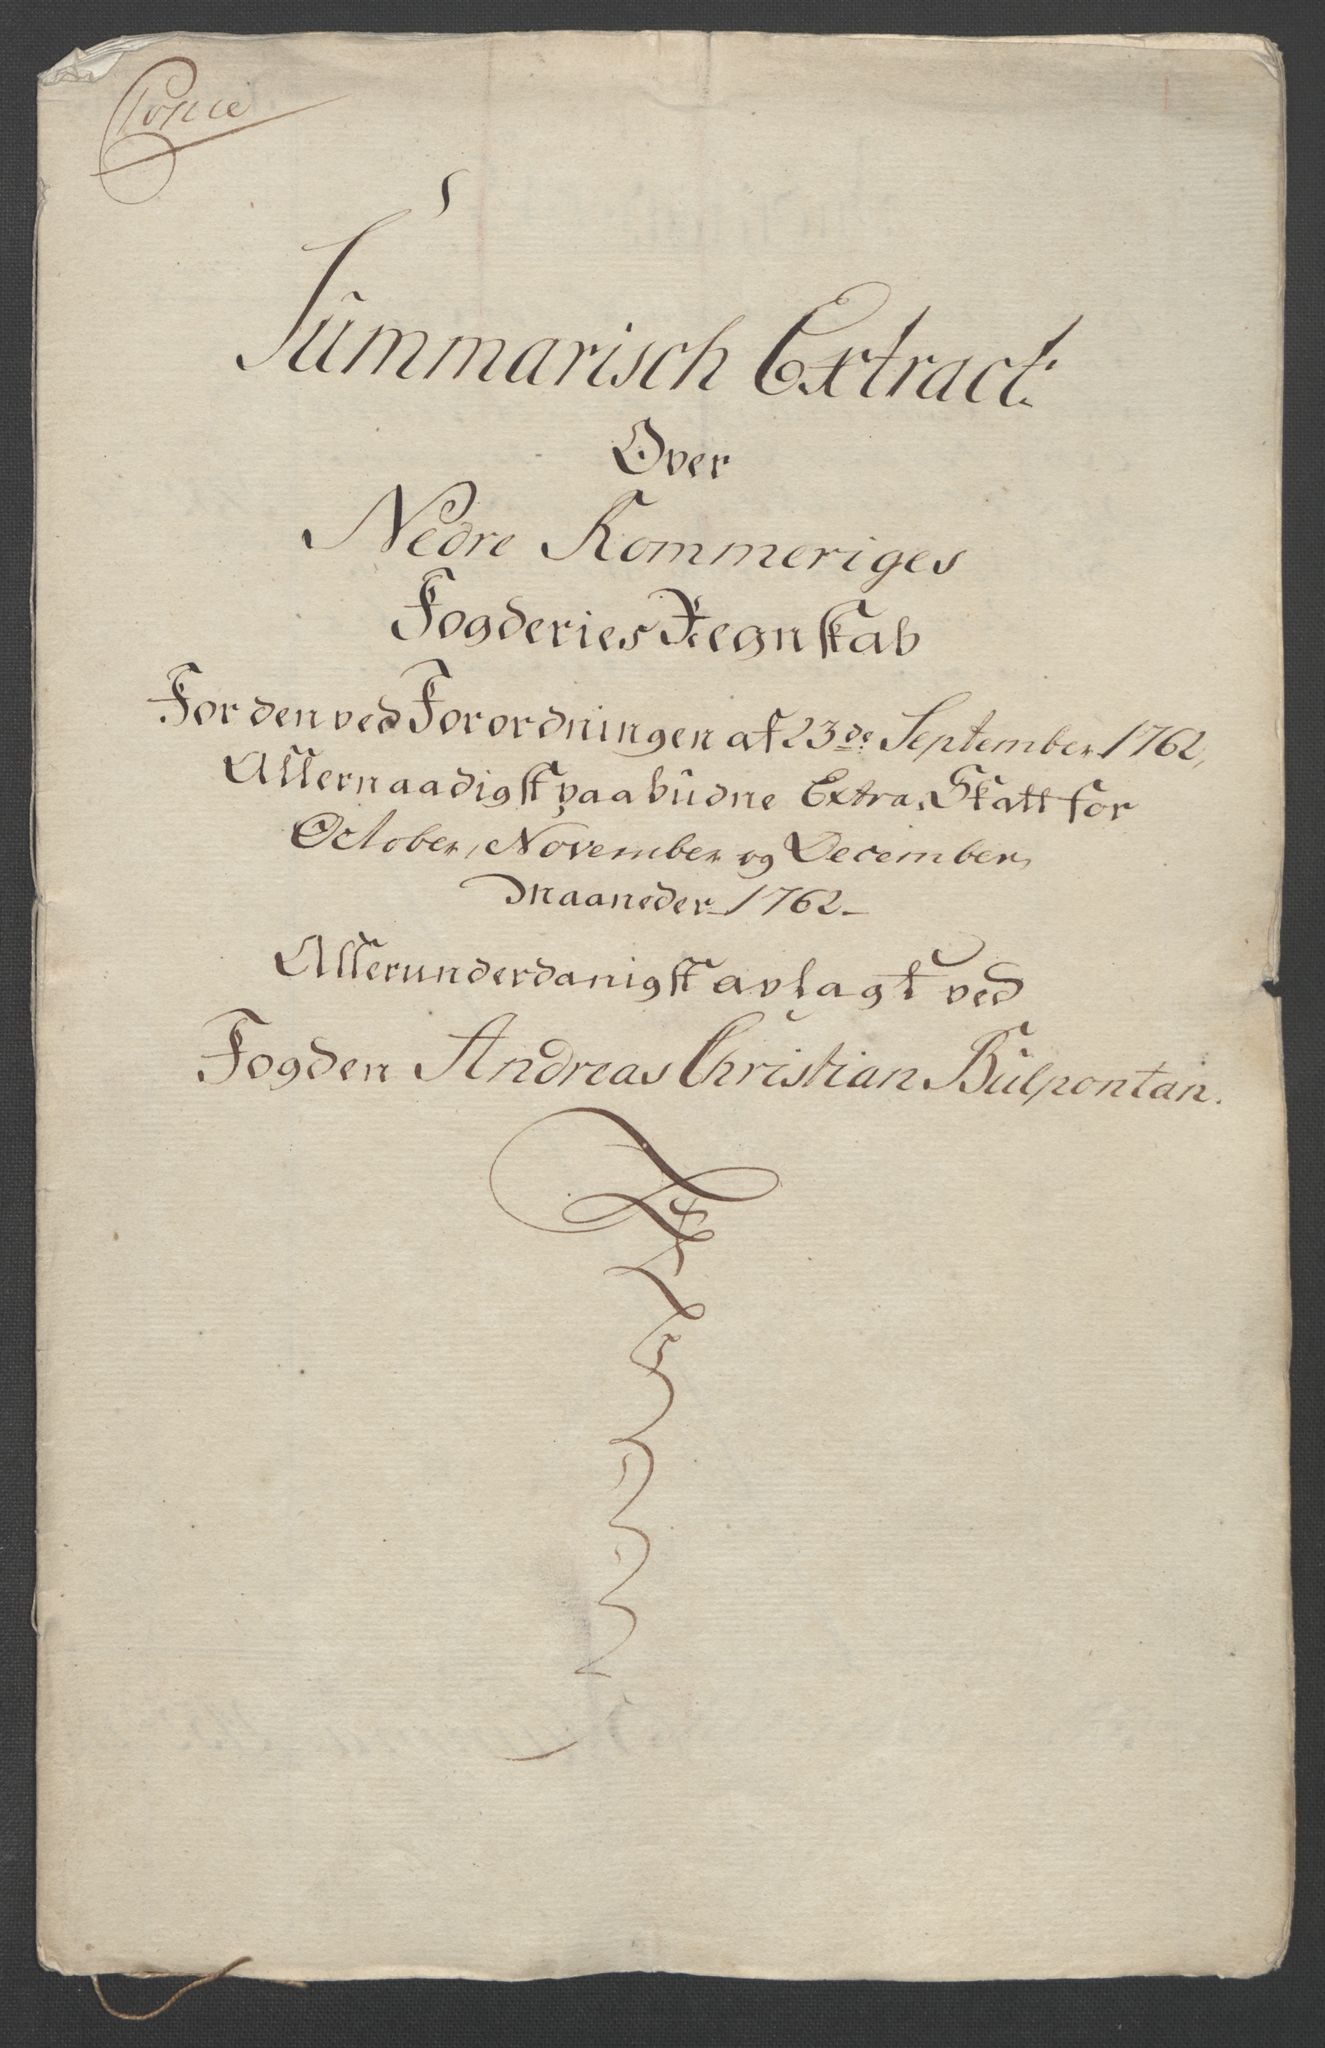 Copie
Summarisch Extract
Over
Nedre Rommeriges
Fogderies Regnskab
For den ved Forordningen af 23de September 1762,
Allernaadigst paabudne Extra Skatt for
October, November og December
Maaneder 1762
Allerunderdanigst avlagt ved
Fogden Andreas Christian Bulpontan.